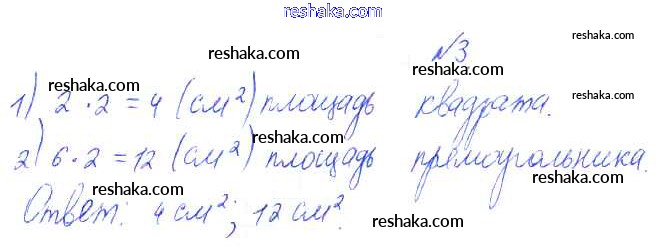 reshaka.com
№3
reshaka.com reshaka.com
reshaka.com reshaka.com
1) 2 · 2 = 4 (см²) площадь квадрата. reshaka.com
reshaka.com
2) 6 · 2 = 12 (см²) площадь прямоугольника.
reshaka.com reshaka.com
Ответ: 4 см²; 12 см². reshaka.com